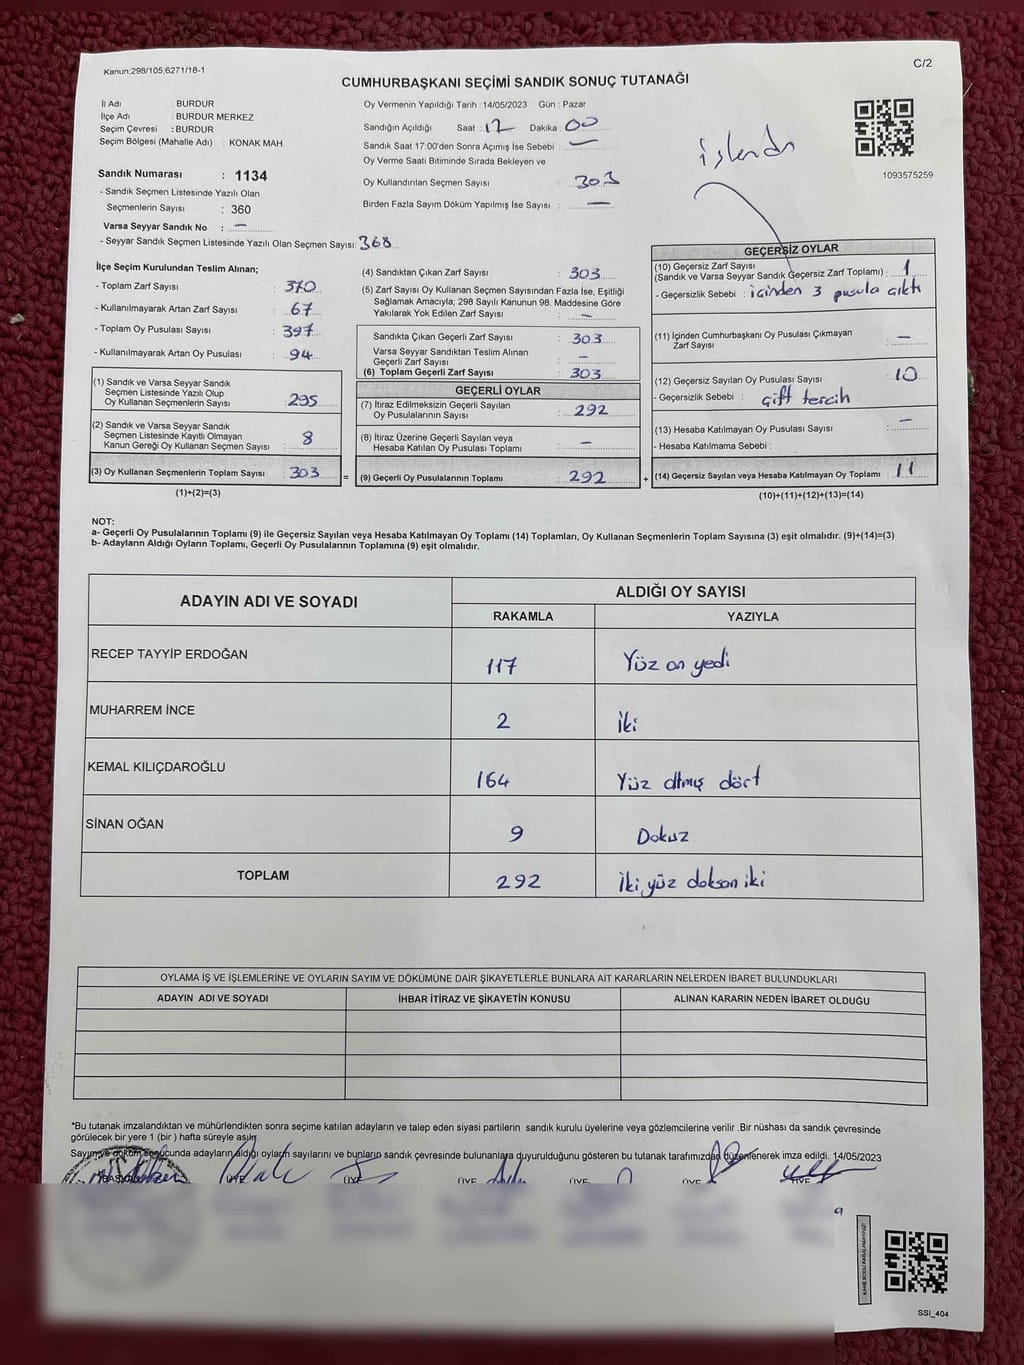 Kanun:298/105,6271/18-1
C/2
CUMHURBAŞKANI SEÇİMİ SANDIK SONUÇ TUTANAĞI
İl Adı : BURDUR
İlçe Adı : BURDUR MERKEZ
Seçim Çevresi : BURDUR
Seçim Bölgesi (Mahalle Adı) : KONAK MAH.
Sandık Numarası : 1134
- Sandık Seçmen Listesinde Yazılı Olan
Seçmenlerin Sayısı : 360
Varsa Seyyar Sandık No : —
- Seyyar Sandık Seçmen Listesinde Yazılı Olan Seçmen Sayısı: 368
Oy Vermenin Yapıldığı Tarih : 14/05/2023 Gün : Pazar
Sandığın Açıldığı Saat : 17 Dakika : 00
Sandık Saat 17:00'den Sonra Açımış İse Sebebi : —
Oy Verme Saati Bitiminde Sırada Bekleyen ve
Oy Kullandırılan Seçmen Sayısı : 303
Birden Fazla Sayım Döküm Yapılmış İse Sayısı : —
işlendi
1093575259
İlçe Seçim Kurulundan Teslim Alınan;
- Toplam Zarf Sayısı : 370
- Kullanılmayarak Artan Zarf Sayısı : 67
- Toplam Oy Pusulası Sayısı : 397
- Kullanılmayarak Artan Oy Pusulası : 94
(1) Sandık ve Varsa Seyyar Sandık
Seçmen Listesinde Yazılı Olup
Oy Kullanan Seçmenlerin Sayısı : 295
(2) Sandık ve Varsa Seyyar Sandık
Seçmen Listesinde Kayıtlı Olmayan
Kanun Gereği Oy Kullanan Seçmen Sayısı : 8
(3) Oy Kullanan Seçmenlerin Toplam Sayısı : 303 =
(1)+(2)=(3)
(4) Sandıktan Çıkan Zarf Sayısı : 303
(5) Zarf Sayısı Oy Kullanan Seçmen Sayısından Fazla İse, Eşitliği
Sağlamak Amacıyla; 298 Sayılı Kanunun 98. Maddesine Göre
Yakılarak Yok Edilen Zarf Sayısı : —
Sandıkta Çıkan Geçerli Zarf Sayısı : 303
Varsa Seyyar Sandıktan Teslim Alınan
Geçerli Zarf Sayısı : —
(6) Toplam Geçerli Zarf Sayısı : 303
GEÇERLİ OYLAR
(7) İtiraz Edilmeksizin Geçerli Sayılan
Oy Pusulalarının Sayısı : 292
(8) İtiraz Üzerine Geçerli Sayılan veya
Hesaba Katılan Oy Pusulası Toplamı : —
(9) Geçerli Oy Pusulalarının Toplamı : 292 +
GEÇERSİZ OYLAR
(10) Geçersiz Zarf Sayısı
(Sandık ve Varsa Seyyar Sandık Geçersiz Zarf Toplamı) : 1
- Geçersizlik Sebebi : içinden 3 pusula çıktı
(11) İçinden Cumhurbaşkanı Oy Pusulası Çıkmayan
Zarf Sayısı : —
(12) Geçersiz Sayılan Oy Pusulası Sayısı : 10
- Geçersizlik Sebebi : Çift tercih
(13) Hesaba Katılmayan Oy Pusulası Sayısı : —
- Hesaba Katılmama Sebebi :
(14) Geçersiz Sayılan veya Hesaba Katılmayan Oy Toplamı : 11
(10)+(11)+(12)+(13)=(14)
NOT:
a- Geçerli Oy Pusulalarının Toplamı (9) ile Geçersiz Sayılan veya Hesaba Katılmayan Oy Toplamı (14) Toplamları, Oy Kullanan Seçmenlerin Toplam Sayısına (3) eşit olmalıdır. (9)+(14)=(3)
b- Adayların Aldığı Oyların Toplamı, Geçerli Oy Pusulalarının Toplamına (9) eşit olmalıdır.
ADAYIN ADI VE SOYADI
ALDIĞI OY SAYISI
RAKAMLA YAZIYLA
RECEP TAYYİP ERDOĞAN 117 Yüz on yedi
MUHARREM İNCE 2 İki
KEMAL KILIÇDAROĞLU 164 Yüz altmış dört
SİNAN OĞAN 9 Dokuz
TOPLAM 292 İki yüz doksan iki
OYLAMA İŞ VE İŞLEMLERİNE VE OYLARIN SAYIM VE DÖKÜMÜNE DAİR ŞİKAYETLERLE BUNLARA AİT KARARLARIN NELERDEN İBARET BULUNDUKLARI
ADAYIN ADI VE SOYADI İHBAR İTİRAZ VE ŞİKAYETİN KONUSU ALINAN KARARIN NEDEN İBARET OLDUĞU
*Bu tutanak imzalandıktan ve mühürlendikten sonra seçime katılan adayların ve talep eden siyasi partilerin sandık kurulu üyelerine veya gözlemcilerine verilir .Bir nüshası da sandık çevresinde
görülecek bir yere 1 (bir ) hafta süreyle asılır.
Sayım ve döküm sonucunda adayların aldığı oyların sayılarını ve bunların sandık çevresinde bulunanlara duyurulduğunu gösteren bu tutanak tarafımızdan düzenlenerek imza edildi. 14/05/2023
ÜYE ÜYE ÜYE ÜYE ÜYE ÜYE
SSI_404